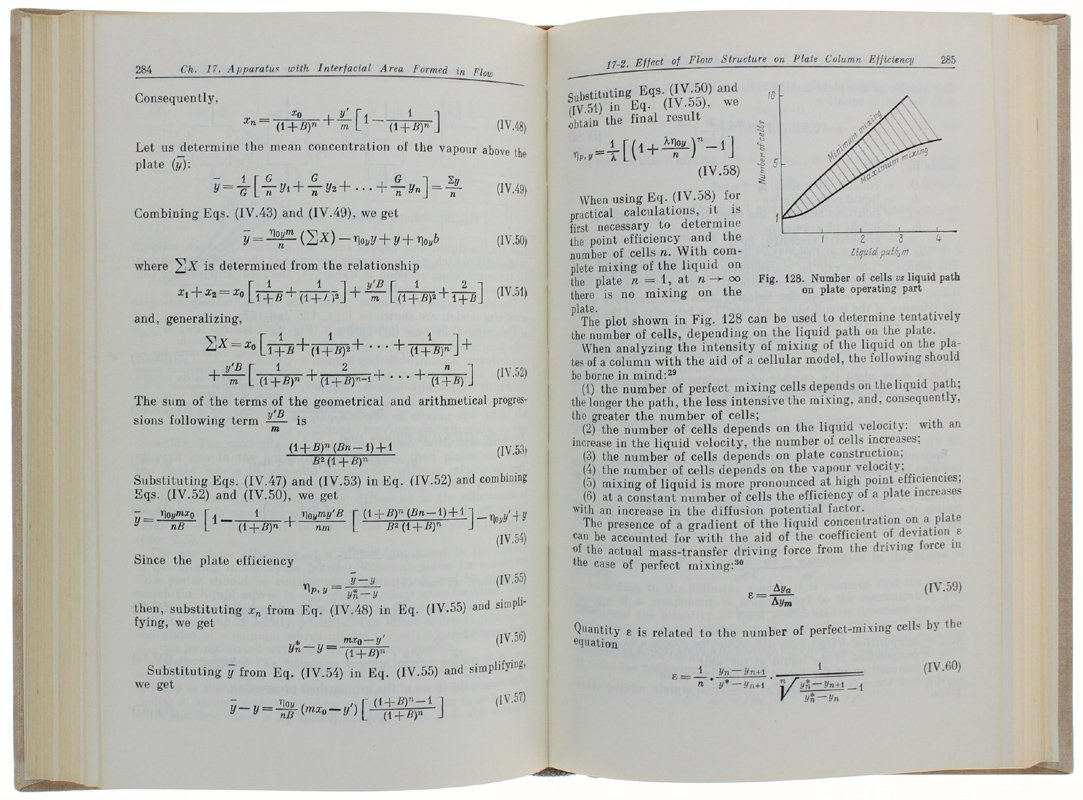 284 Ch. 17. Apparatus with Interfacial Area Formed in Flow
Consequently,
xₙ = x₀/(1+B)ⁿ + y′/m [1 − 1/(1+B)ⁿ] (IV.48)
Let us determine the mean concentration of the vapour above the
plate (ȳ):
ȳ = 1/G [G/n y₁ + G/n y₂ + . . . + G/n yₙ] = Σy/n (IV.49)
Combining Eqs. (IV.43) and (IV.49), we get
ȳ = η₀ᵧm/n (∑X) − η₀ᵧy + y + η₀ᵧb (IV.50)
where ∑X is determined from the relationship
x₁ + x₂ = x₀ [1/(1+B) + 1/(1+B)²] + y′B/m [1/(1+B)² + 2/(1+B)] (IV.51)
and, generalizing,
∑X = x₀ [1/(1+B) + 1/(1+B)² + . . . + 1/(1+B)ⁿ] +
+ y′B/m [1/(1+B)ⁿ + 2/(1+B)ⁿ⁻¹ + . . . + n/(1+B)] (IV.52)
The sum of the terms of the geometrical and arithmetical progres-
sions following term y′B/m is
(1+B)ⁿ (Bn−1)+1 / B² (1+B)ⁿ (IV.53)
Substituting Eqs. (IV.47) and (IV.53) in Eq. (IV.52) and combining
Eqs. (IV.52) and (IV.50), we get
ȳ = η₀ᵧmx₀/nB [1 − 1/(1+B)ⁿ + η₀ᵧmy′B/nm [(1+B)ⁿ (Bn−1)+1 / B² (1+B)ⁿ] − η₀ᵧy′ + y
(IV.54)
Since the plate efficiency
ηₚ,ᵧ = (ȳ − y)/(yₙ* − y) (IV.55)
then, substituting xₙ from Eq. (IV.48) in Eq. (IV.55) and simpli-
fying, we get
yₙ* − y = (mx₀ − y′)/(1+B)ⁿ (IV.56)
Substituting ȳ from Eq. (IV.54) in Eq. (IV.55) and simplifying,
we get
ȳ − y = η₀ᵧ/nB (mx₀ − y′) [(1+B)ⁿ − 1 / (1+B)ⁿ] (IV.57)
17-2. Effect of Flow Structure on Plate Column Efficiency 285
Substituting Eqs. (IV.50) and
(IV.51) in Eq. (IV.55), we
obtain the final result
ηₚ,ᵧ = 1/λ [(1 + λη₀ᵧ/n)ⁿ − 1]
(IV.58)
When using Eq. (IV.58) for
practical calculations, it is
first necessary to determine
the point efficiency and the
number of cells n. With com-
plete mixing of the liquid on
the plate n = 1, at n → ∞
there is no mixing on the
plate.
Number of cells
10
5
1
Minimum mixing
Maximum mixing
1 2 3 4
Liquid path, m
Fig. 128. Number of cells vs liquid path
on plate operating part
The plot shown in Fig. 128 can be used to determine tentatively
the number of cells, depending on the liquid path on the plate.
When analyzing the intensity of mixing of the liquid on the pla-
tes of a column with the aid of a cellular model, the following should
be borne in mind:²⁹
(1) the number of perfect mixing cells depends on the liquid path;
the longer the path, the less intensive the mixing, and, consequently,
the greater the number of cells;
(2) the number of cells depends on the liquid velocity: with an
increase in the liquid velocity, the number of cells increases;
(3) the number of cells depends on plate construction;
(4) the number of cells depends on the vapour velocity;
(5) mixing of liquid is more pronounced at high point efficiencies;
(6) at a constant number of cells the efficiency of a plate increases
with an increase in the diffusion potential factor.
The presence of a gradient of the liquid concentration on a plate
can be accounted for with the aid of the coefficient of deviation ε
of the actual mass-transfer driving force from the driving force in
the case of perfect mixing:³⁰
ε = Δyₐ/Δyₘ (IV.59)
Quantity ε is related to the number of perfect-mixing cells by the
equation
ε = 1/n · (yₙ − yₙ₊₁)/(y* − yₙ₊₁) · 1/ⁿ√((yₙ* − yₙ₊₁)/(yₙ* − yₙ) − 1) (IV.60)